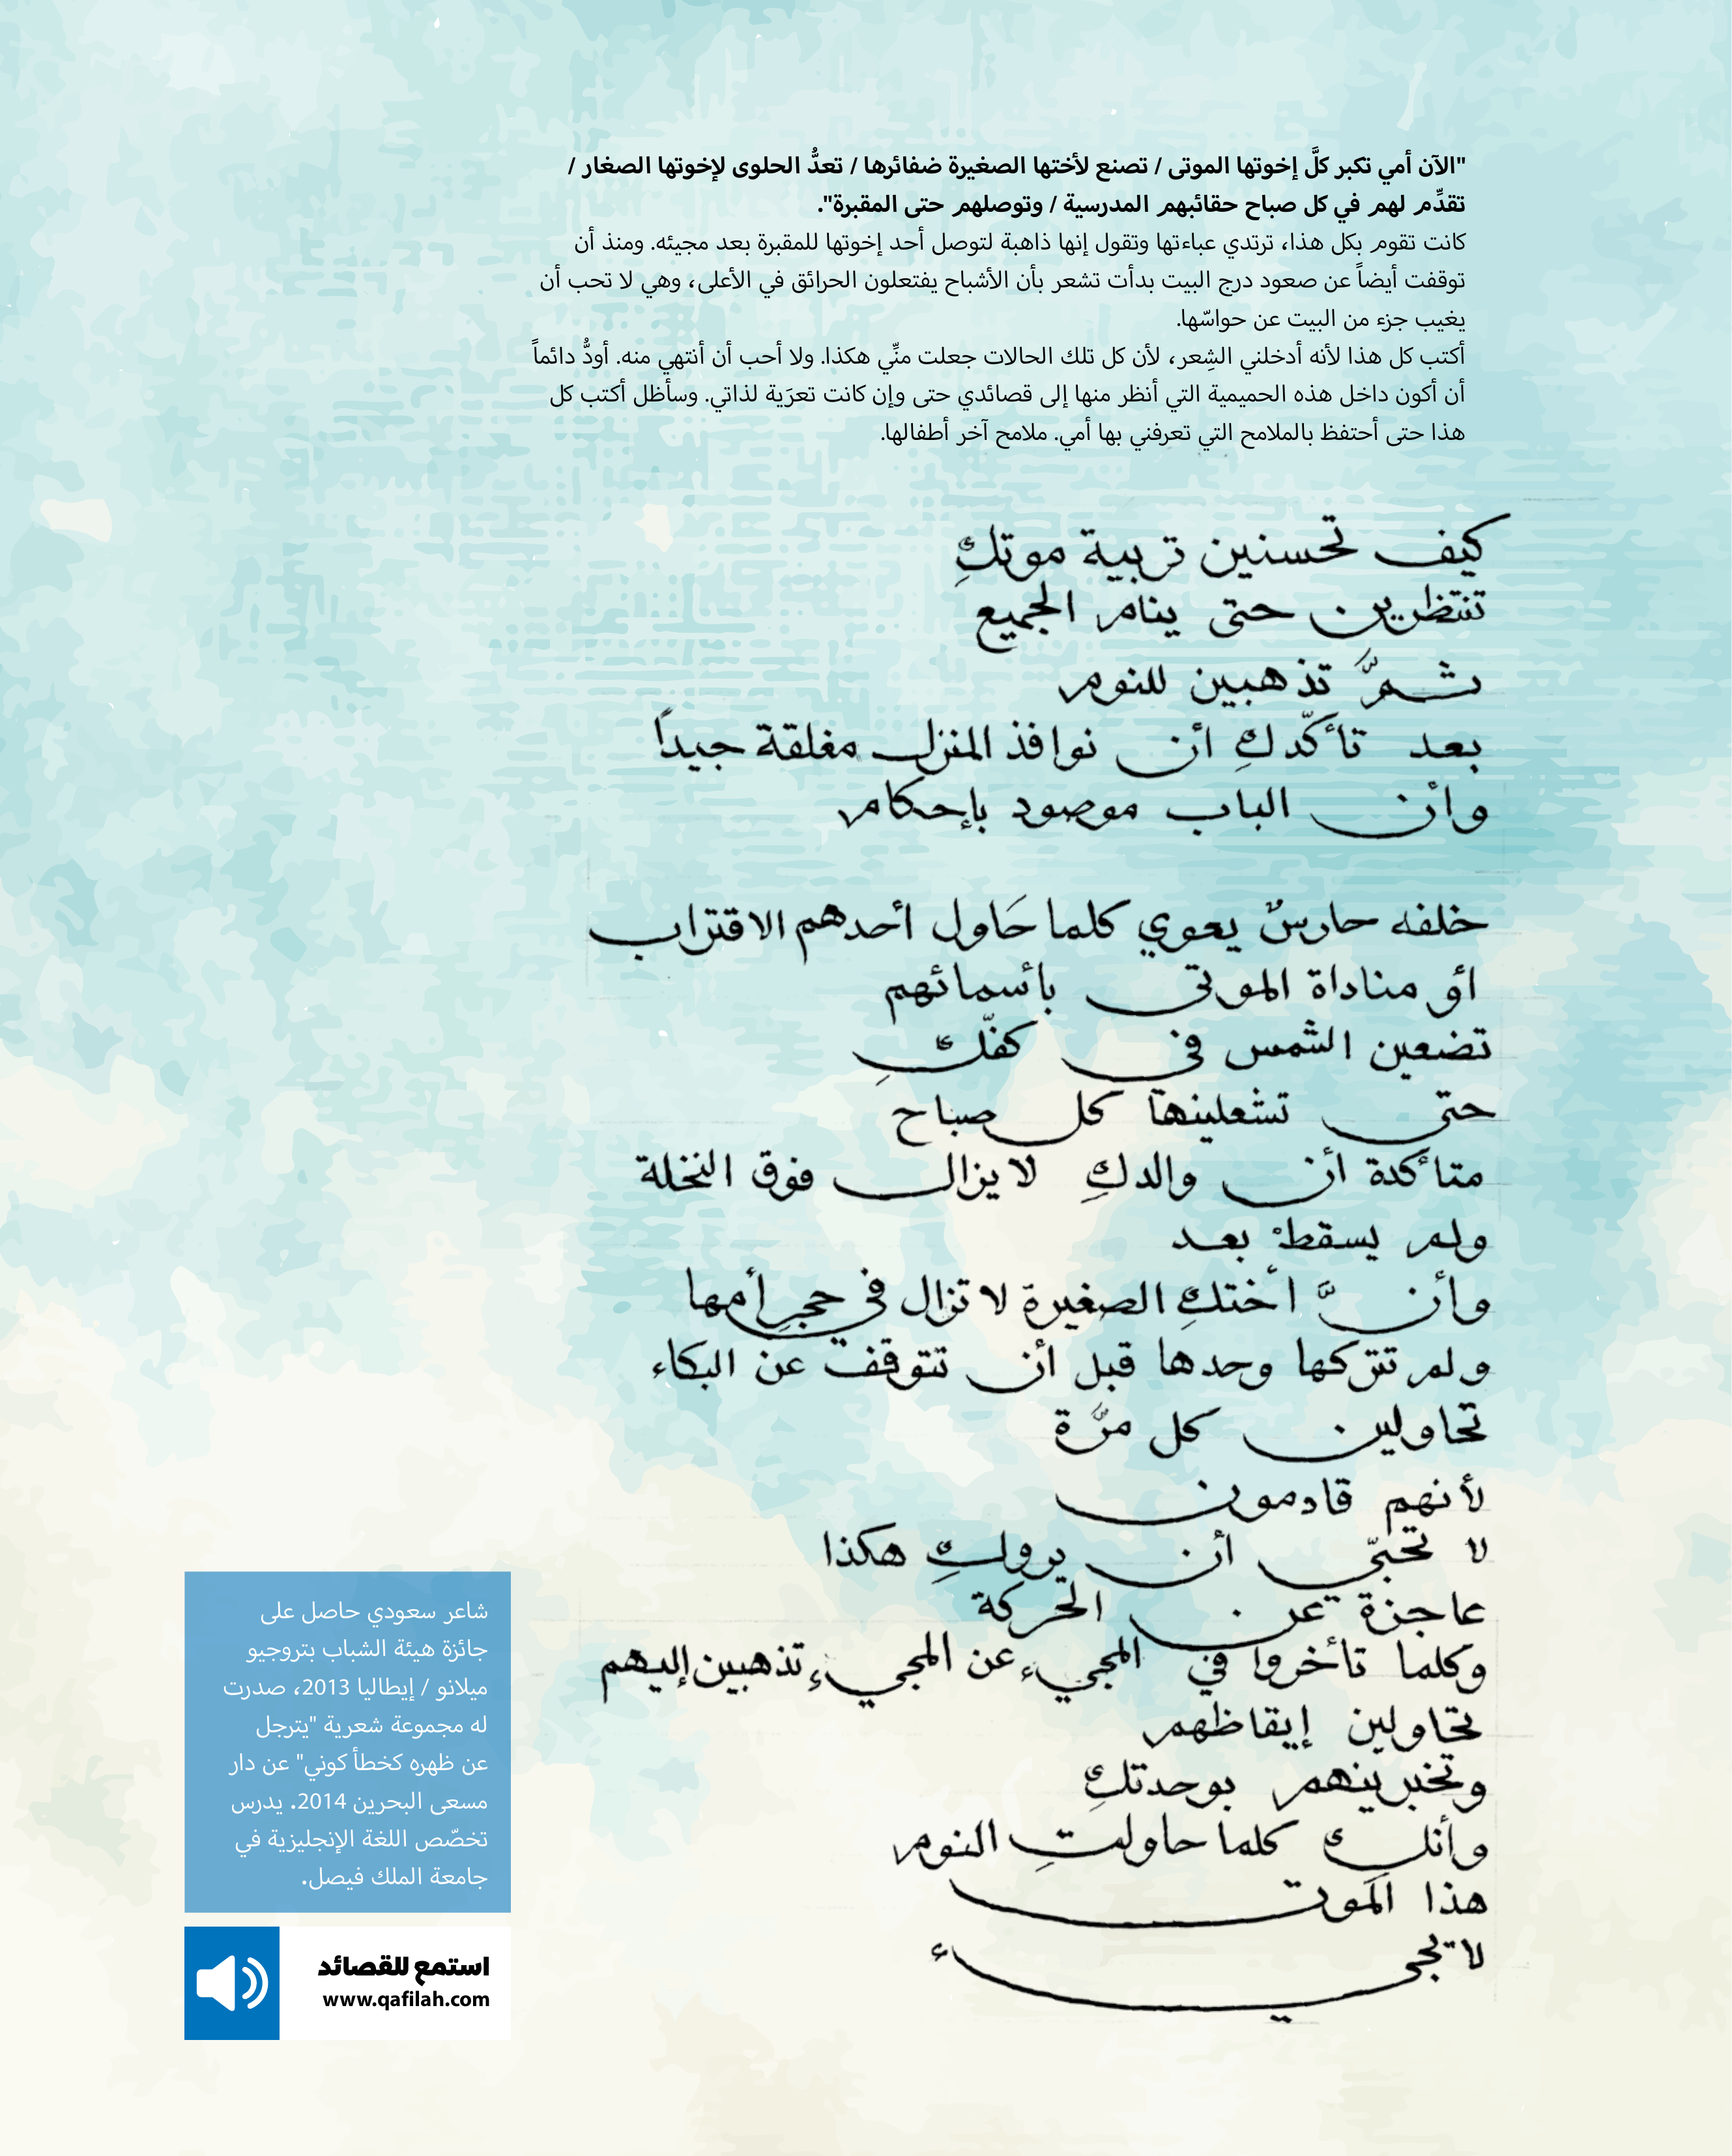 "الآن أمي تكبر كلَّ إخوتها الموتى / تصنع لأختها الصغيرة ضفائرها / تعدُّ الحلوى لإخوتها الصغار /
تقدِّم لهم في كل صباح حقائبهم المدرسية / وتوصلهم حتى المقبرة".
كانت تقوم بكل هذا، ترتدي عباءتها وتقول إنها ذاهبة لتوصل أحد إخوتها للمقبرة بعد مجيئه. ومنذ أن
توقفت أيضاً عن صعود درج البيت بدأت تشعر بأن الأشباح يفتعلون الحرائق في الأعلى، وهي لا تحب أن
يغيب جزء من البيت عن حواسّها.
أكتب كل هذا لأنه أدخلني الشِعر، لأن كل تلك الحالات جعلت منِّي هكذا. ولا أحب أن أنتهي منه. أودُّ دائماً
أن أكون داخل هذه الحميمية التي أنظر منها إلى قصائدي حتى وإن كانت تعرَية لذاتي. وسأظل أكتب كل
هذا حتى أحتفظ بالملامح التي تعرفني بها أمي. ملامح آخر أطفالها.
كيف تحسنين تربية موتكِ
تنتظرين حتى ينام الجميع
ثمَّ تذهبين للنوم
بعد تأكّدكِ أن نوافذ المنزل مغلقة جيداً
وأن الباب موصود بإحكام
خلفه حارسٌ يعوي كلما حَاول أحدهم الاقتراب
أو مناداة الموتى بأسمائهم
تضعين الشمس في كفّكِ
حتى تشعلينها كل صباح
متأكدة أن والدكِ لا يزال فوق النخلة
ولم يسقطْ بعد
وأنَّ أختكِ الصغيرة لا تزال في حجرِ أمها
ولم تتركها وحدها قبل أن تتوقف عن البكاء
تحاولين كل مرَّة
لأنهم قادمون
لا تحبّي أن يرولكِ هكذا
عاجزة عن الحركة
وكلما تأخروا في المجيء عن المجيء تذهبين إليهم
تحاولين إيقاظهم
وتخبرينهم بوحدتكِ
وأنكِ كلما حاولتِ النوم
هذا الموت
لا يجيء
شاعر سعودي حاصل على
جائزة هيئة الشباب بتروجيو
ميلانو / إيطاليا 2013، صدرت
له مجموعة شعرية "يترجل
عن ظهره كخطأ كوني" عن دار
مسعى البحرين 2014. يدرس
تخصّص اللغة الإنجليزية في
جامعة الملك فيصل.
استمع للقصائد
www.qafilah.com